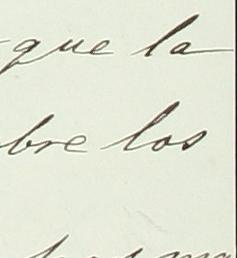 que la
obre los